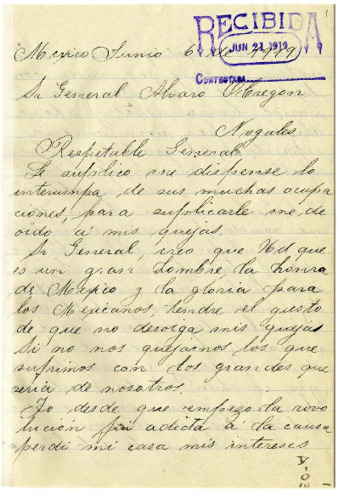 RECIBIDA
JUN 21 1919
CONTESTADA
Mexico Junio 6 de 1919
Sr General Alvaro Obregon
Nogales
Respetable General
Le suplico me dispense lo
interumpa de sus muchas ocupa
ciones, para suplicarle me de
oido á mis quejas.
Sr General, creo que Ud que
es un gran hombre, la honra
de Mexico y la gloria para
los Mexicanos, tendre el gusto
de que no desolga mis quejas
Si no nos quejamos los que
sufrimos con los grandes que
seria de nosotros.
Yo desde que empezo la revo
lucion fui adicta á la causa
perdi mi casa mis intereses